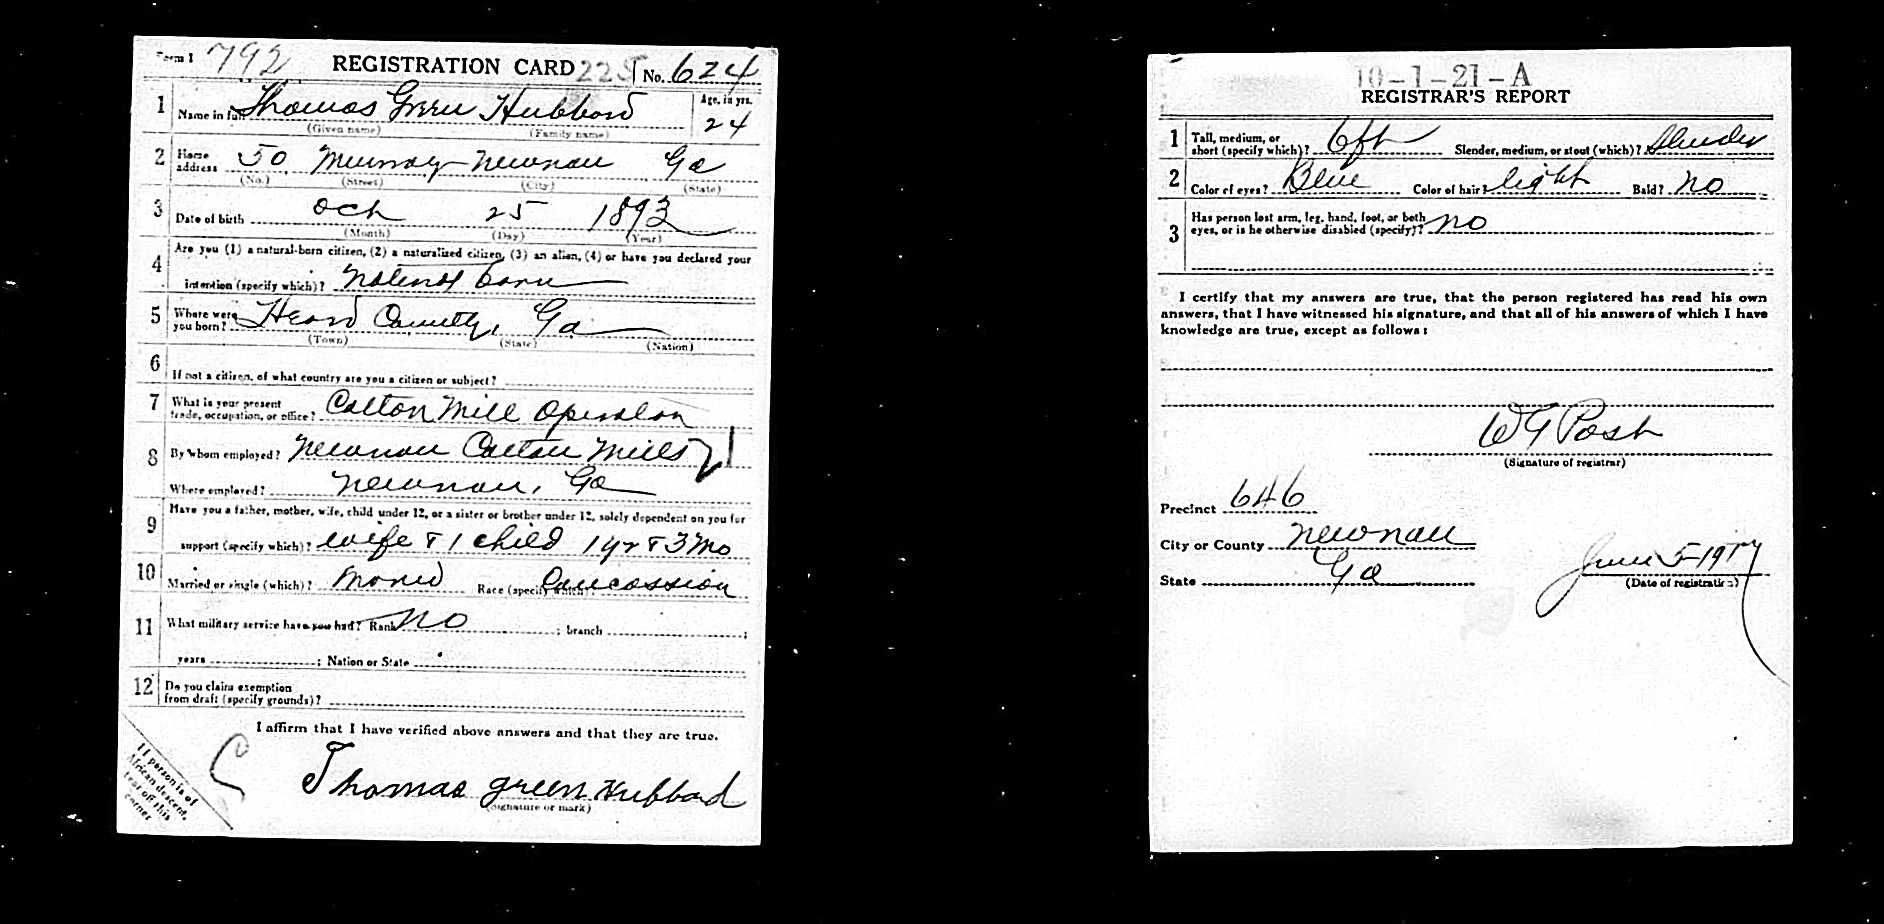 Form 1 792 REGISTRATION CARD 225 No. 624
1 Name in full Thomas Green Hubbard Age, in yrs.
(Given name) (Family name) 24
2 Home address 50 Murray Newnan Ga
(No.) (Street) (City) (State)
3 Date of birth Oct 25 1893
(Month) (Day) (Year)
4 Are you (1) a natural-born citizen, (2) a naturalized citizen, (3) an alien, (4) or have you declared your
intention (specify which)? Natural born
5 Where were you born? Heard County, Ga
(Town) (State) (Nation)
6 If not a citizen, of what country are you a citizen or subject?
7 What is your present trade, occupation, or office? Cotton Mill Operator
8 By whom employed? Newnan Cotton Mills
Where employed? Newnan, Ga
9 Have you a father, mother, wife, child under 12, or a sister or brother under 12, solely dependent on you for
support (specify which)? wife & 1 child 1 yr & 3 Mo
10 Married or single (which)? Married Race (specify which)? Caucassion
11 What military service have you had? Rank No ; branch ;
years ; Nation or State
12 Do you claim exemption
from draft (specify grounds)?
I affirm that I have verified above answers and that they are true.
Thomas green Hubbard
(Signature or mark)
If person is of
African descent,
tear off this
corner
10-1-21-A
REGISTRAR'S REPORT
1 Tall, medium, or short (specify which)? 6 ft Slender, medium, or stout (which)? Slender
2 Color of eyes? Blue Color of hair? light Bald? No
3 Has person lost arm, leg, hand, foot, or both
eyes, or is he otherwise disabled (specify)? No
I certify that my answers are true, that the person registered has read his own
answers, that I have witnessed his signature, and that all of his answers of which I have
knowledge are true, except as follows:
W G Post
(Signature of registrar)
Precinct 646
City or County Newnan
State Ga
June 5-1917
(Date of registration)